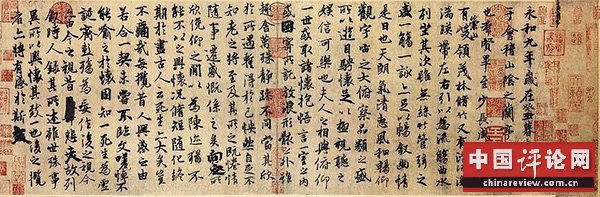 永和九年歲在癸丑
于會稽山陰之蘭亭
也群賢畢至少長咸
有崇山峻領茂林脩竹又有清
湍暎帶左右引以為流觴曲水
列坐其次雖無絲竹管弦之
盛一觴一詠亦足以暢敘幽情
是日也天朗氣清惠風和暢仰
觀宇宙之大俯察品類之盛
所以遊目騁懷足以極視聽之
娛信可樂也夫人之相與俯仰
一世或取諸懷抱悟言一室之內
或因寄所託放浪形骸之外雖
趣舍萬殊靜躁不同當其欣
於所遇蹔得於己怏然自足不
知老之將至及其所之既惓情
隨事遷感慨係之矣向之所
欣俛仰之閒以為陳迹猶不
能不以之興懷況脩短隨化終
期於盡古人云死生亦大矣豈
不痛哉每攬昔人興感之由
若合一契未嘗不臨文嗟悼不
能喻之於懷固知一死生為虛
誕齊彭殤為妄作後之視今
亦由今之視昔悲夫故列
敘時人錄其所述雖世殊事
異所以興懷其致一也後之攬
者亦將有感於斯文
中国评论网
chinareview.com